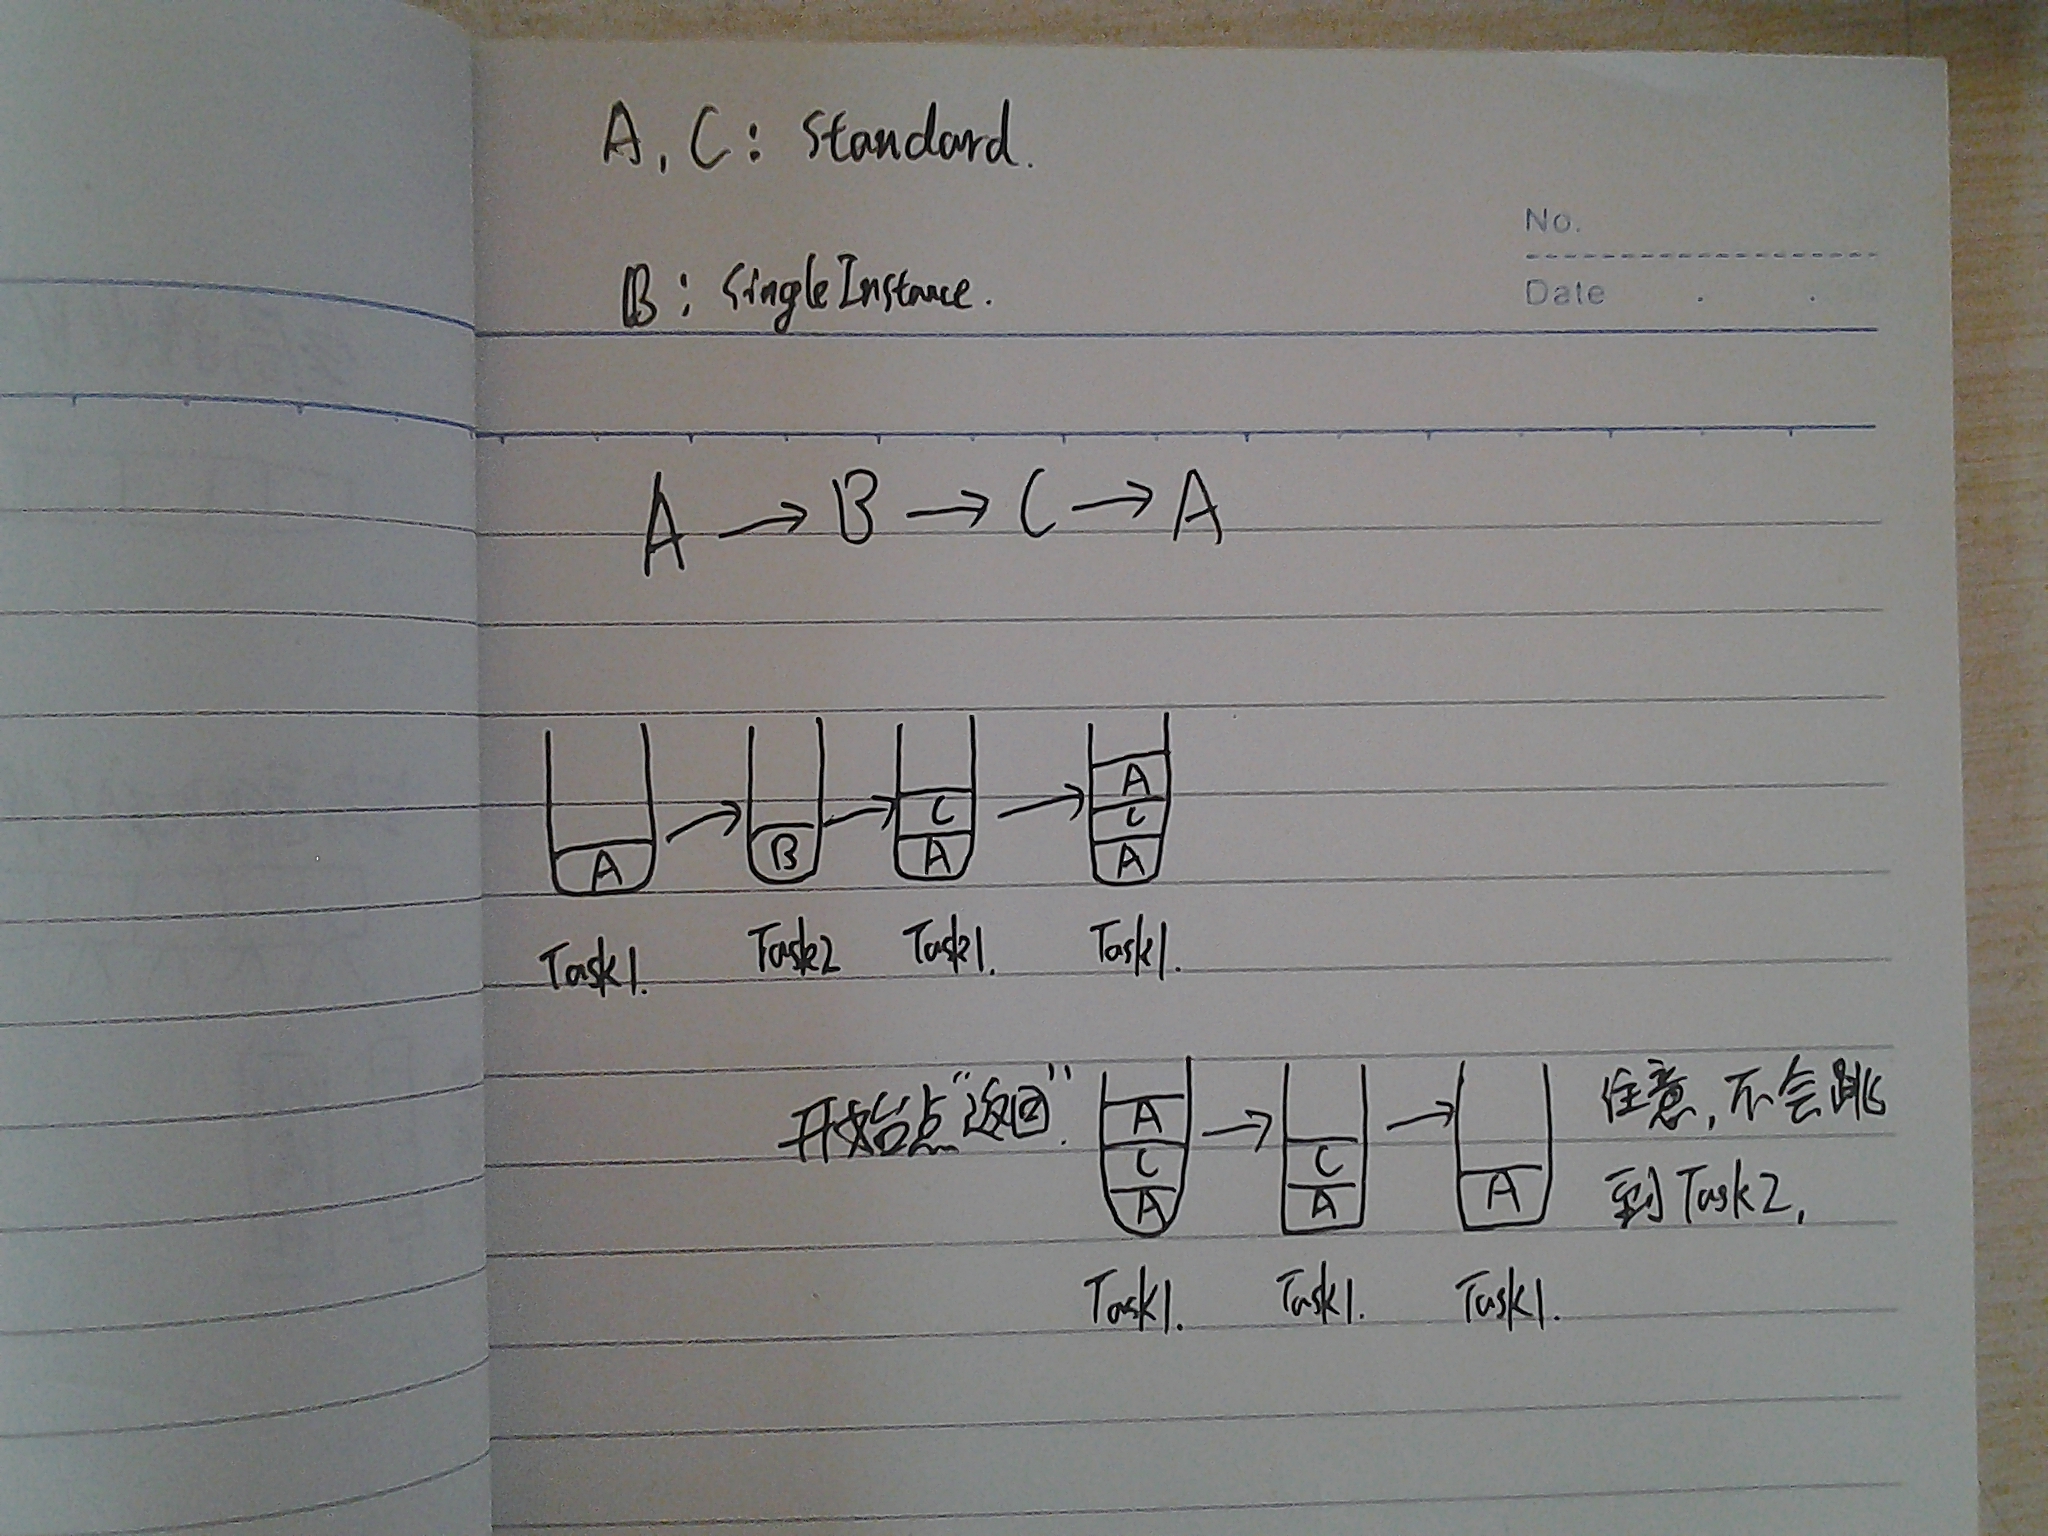 A, C: Standard.
No.
B: SingleInstance.
Date . .
A → B → C → A
A → B → C → A
A C
A
Task1. Task2 Task1. Task1.
开始点“返回”. A → C → A 任意,不会跳
C A 到Task2,
A
Task1. Task1. Task1.